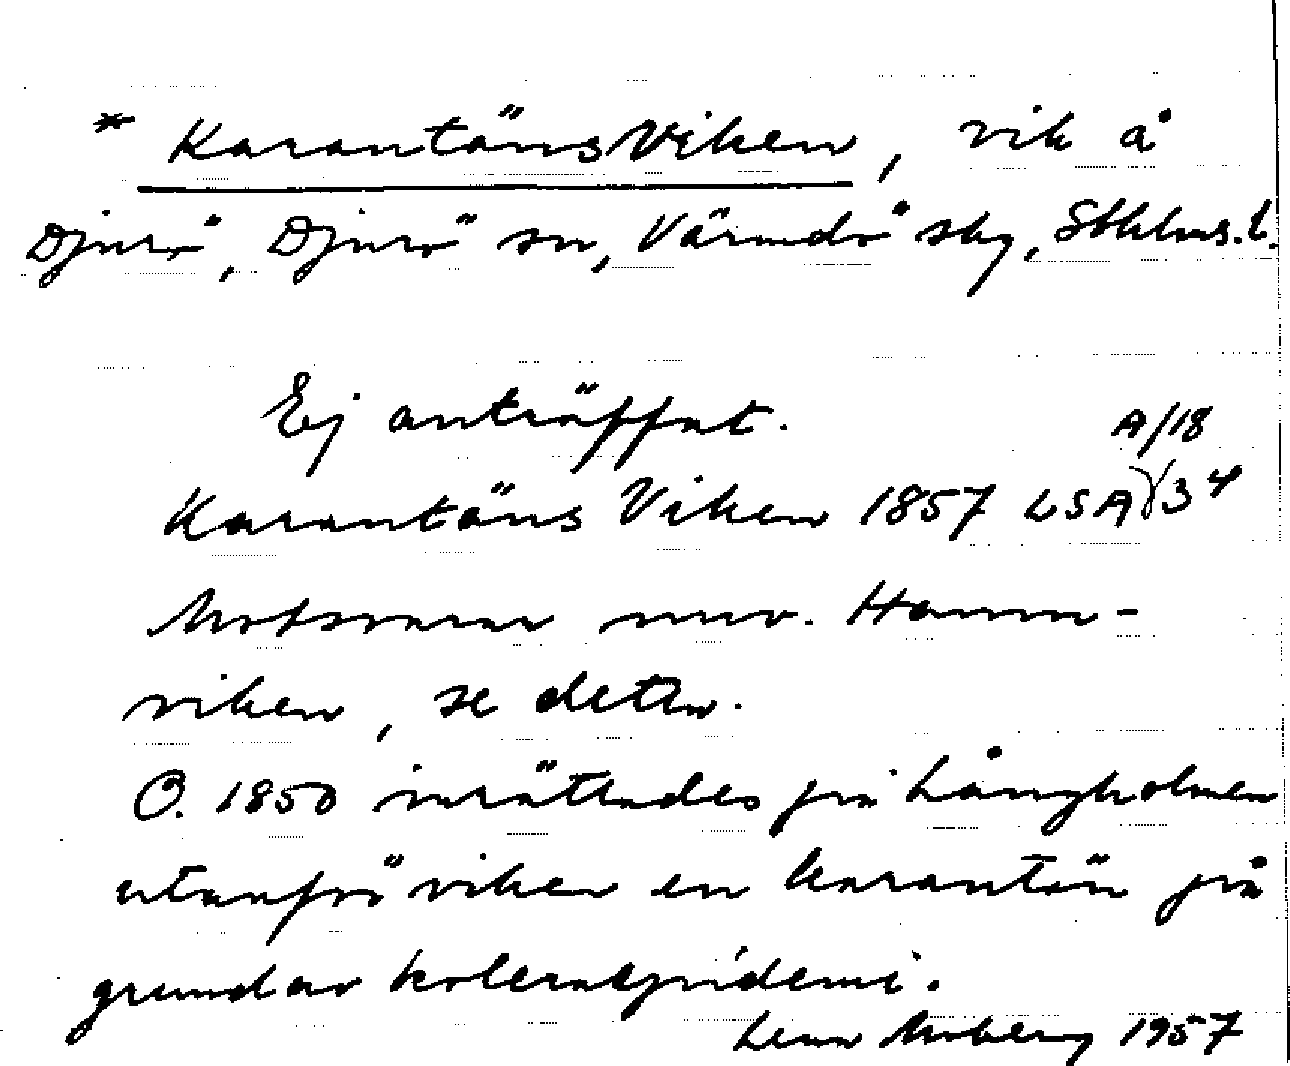 * KarantänsViken, vik å
Djurö, Djurö sn, Värmdö skg, Sthlms.l.
Ej anträffat.
A/18
Karantäns Viken 1857 LSA 34
Motsvarar nuv. Hamn-
viken, se detta.
O. 1850 inrättades på Långholmen
utanför viken en karantän på
grund av koleraepidemi.
Lena Moberg 1957